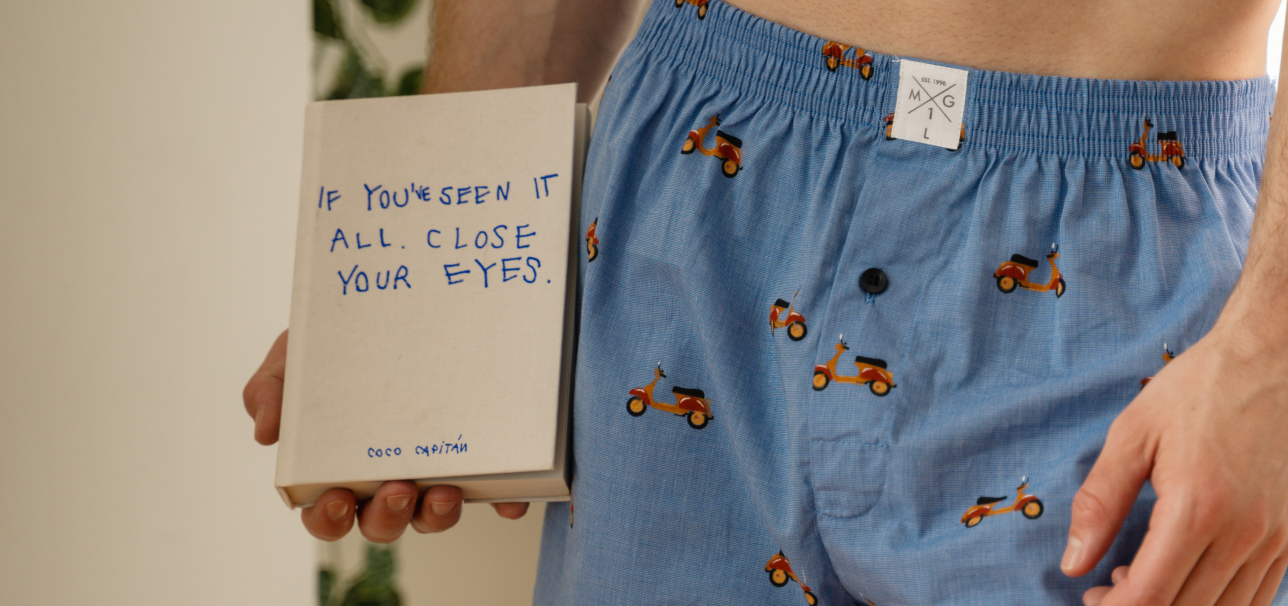 IF YOU'VE SEEN IT
ALL. CLOSE
YOUR EYES.
COCO CAPITÁN
EST. 1990
M G
1
L